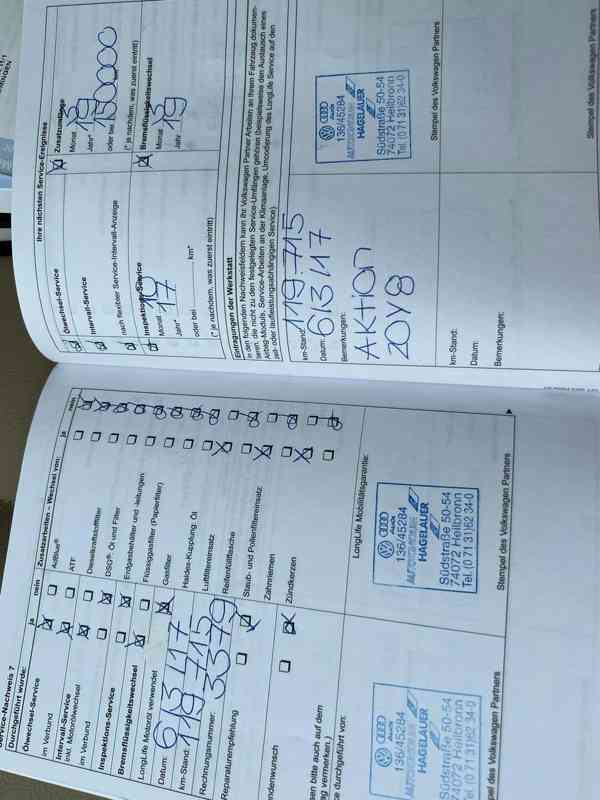 Service-Nachweis 7
Durchgeführt wurde:
ja nein
Ölwechsel-Service
im Verbund
Intervall-Service
inkl. Motorölwechsel
im Verbund
Inspektions-Service
Bremsflüssigkeitswechsel
LongLife Motoröl verwendet
Datum: 6/3/17
km-Stand: 119.715
Rechnungsnummer: 3379
Reparaturempfehlung
ndenwunsch
sen bitte auch auf dem
g vermerken.)
e durchgeführt von:
136/45284
AUTOZENTRUM
HAGELAUER
Südstraße 50-54
74072 Heilbronn
Tel. (0 71 31) 62 34-0
pel des Volkswagen Partners
Zusatzarbeiten – Wechsel von:
ja nein
AdBlue®
ATF
Dieselkraftstofffilter
DSG®: Öl und Filter
Erdgasbehälter und -leitungen
Flüssiggasfilter (Papierfilter)
Gasfilter
Haldex-Kupplung: Öl
Luftfiltereinsatz
Reifenfüllflasche
Staub- und Pollenfiltereinsatz:
Zahnriemen
Zündkerzen
LongLife Mobilitätsgarantie:
Audi
136/45284
AUTOZENTRUM
HAGELAUER
Südstraße 50-54
74072 Heilbronn
Tel. (0 71 31) 62 34-0
Stempel des Volkswagen Partners
Ihre nächsten Service-Ereignisse
Ölwechsel-Service
Intervall-Service
nach flexibler Service-Intervall-Anzeige
Inspektions-Service
Monat
Jahr* 17
oder bei km*
(* je nachdem, was zuerst eintritt)
Zusatzumfänge
Monat 3
Jahr* 19
oder bei 150000
(* je nachdem, was zuerst eintritt)
Bremsflüssigkeitswechsel
Monat 3
Jahr 19
Eintragungen der Werkstatt
In den folgenden Nachweisfeldern kann Ihr Volkswagen Partner Arbeiten an Ihrem Fahrzeug dokumen-
tieren, die nicht zu den festgelegten Service-Umfängen gehören (beispielsweise den Austausch eines
Airbag-Moduls, Service-Arbeiten an der Klimaanlage, Umcodierung des LongLife Service auf den
zeit- oder laufleistungsabhängigen Service)
km-Stand: 119.715
Datum: 6/3/17
Bemerkungen:
AKTION
20Y8
Audi
136/45284
AUTOZENTRUM
HAGELAUER
Südstraße 50-54
74072 Heilbronn
Tel. (0 71 31) 62 34-0
Stempel des Volkswagen Partners
km-Stand:
Datum:
Bemerkungen:
Stempel des Volkswagen Partners